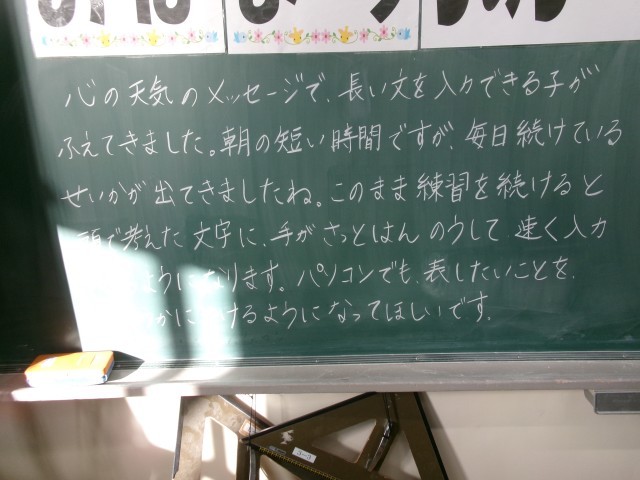 おはようございます
心の天気のメッセージで、長い文を入力できる子が
ふえてきました。朝の短い時間ですが、毎日続けている
せいかが出てきましたね。このまま練習を続けると
頭で考えた文字に、手がさっとはんのうして速く入力
ようになります。パソコンでも、表したいことを、
かに けるようになってほしいです。